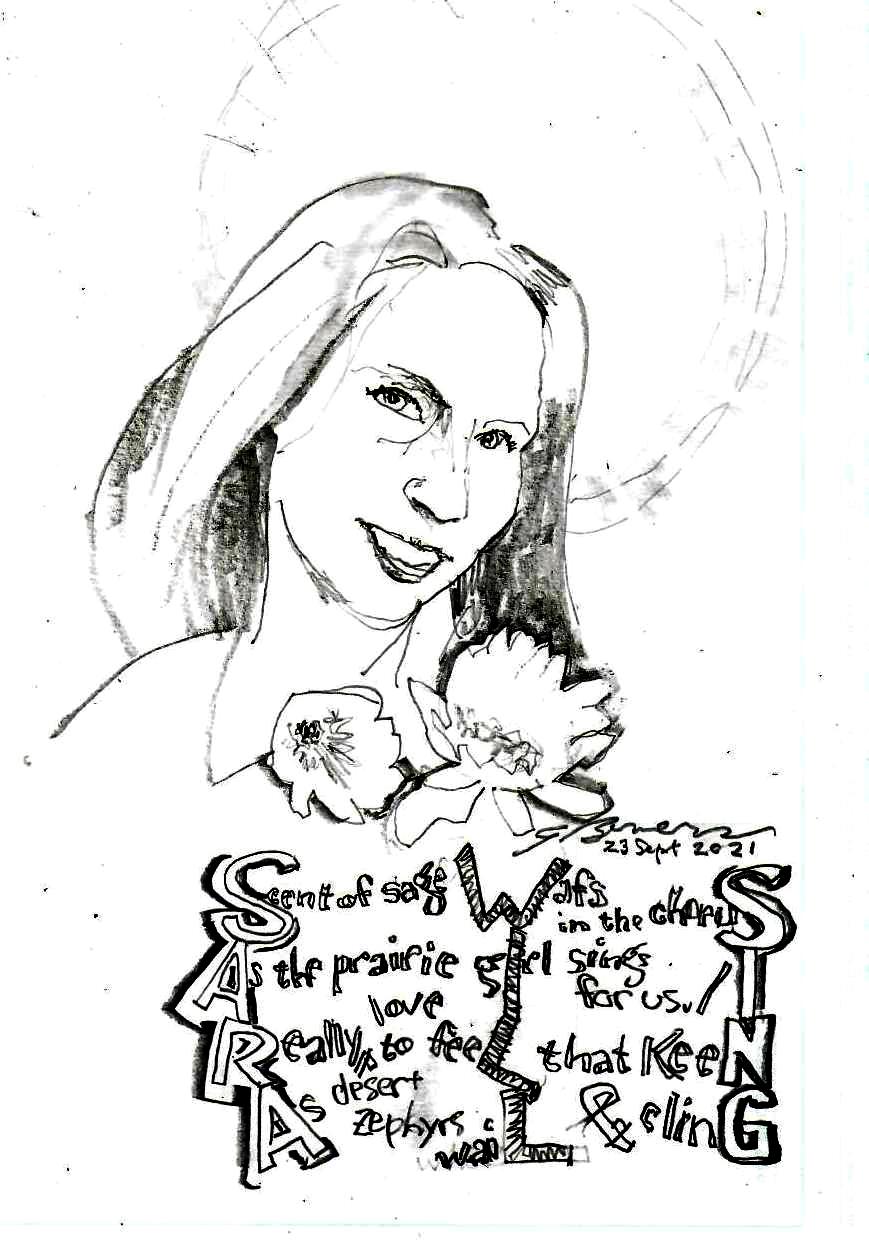 23 Sept 2021
Scent of sage Wafs
in the choruS
As the prairie girl sings
for us. / I
love
Really, to feeL that KeeN
As desert
zephyrs waiL & clinG